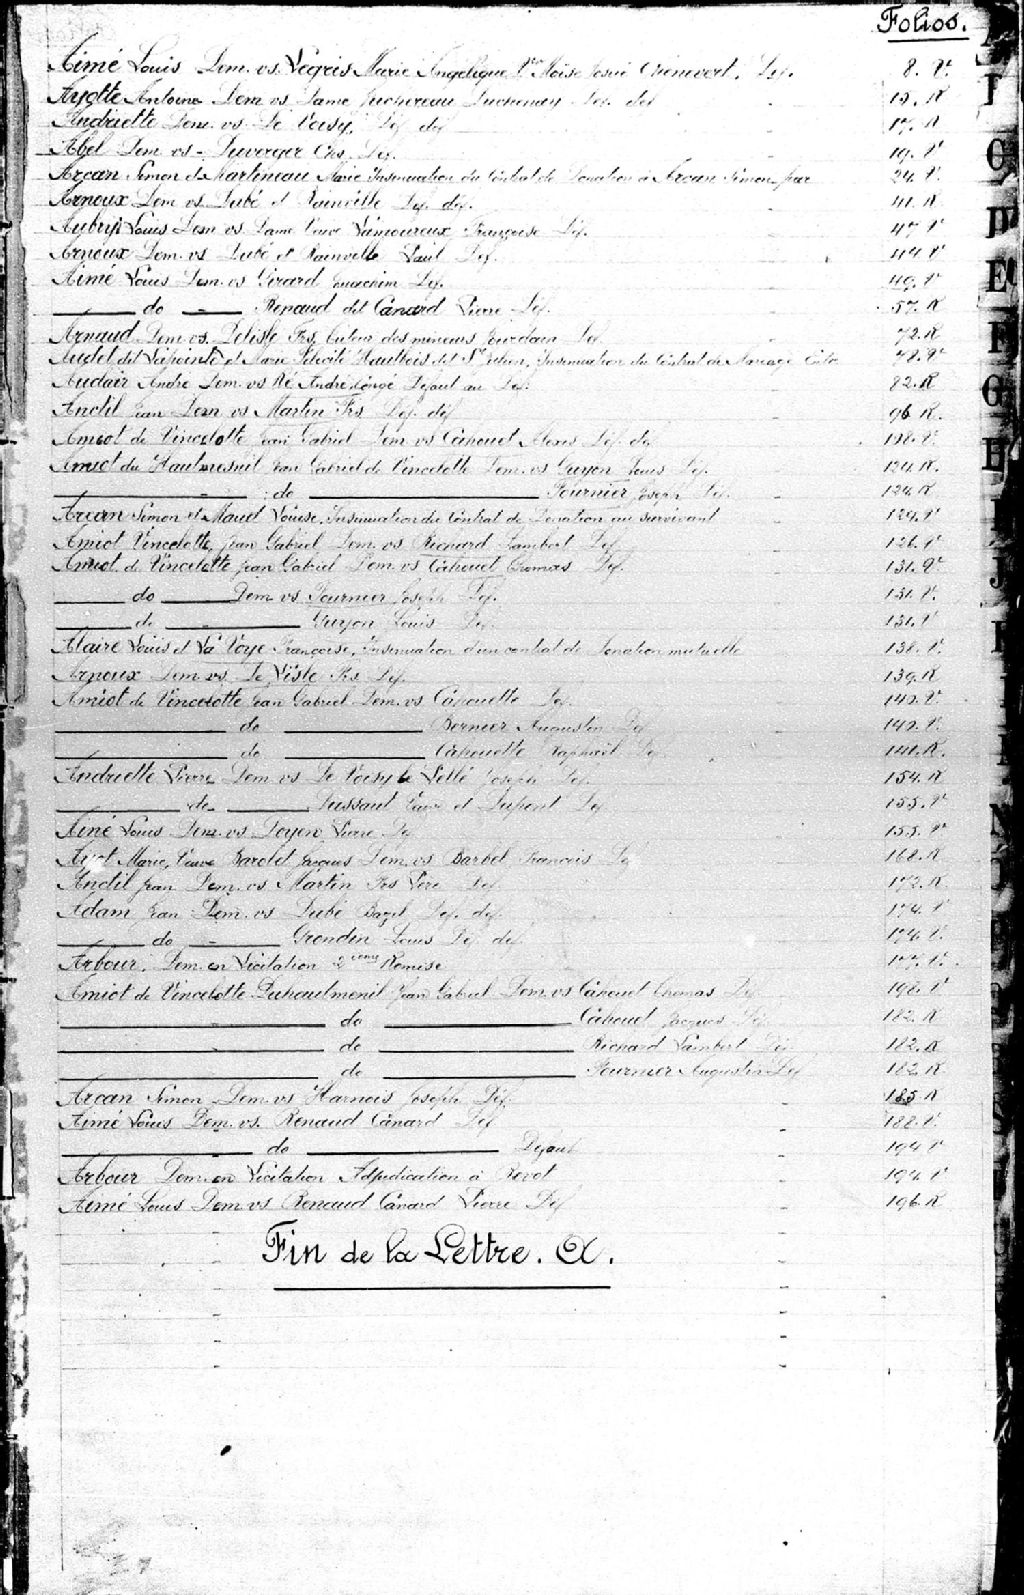 Folios.
Aimé Louis Dem. vs. Légris Marie Angélique Vve Moïse Josué Chenevert, Déf. 8. V.
Ayotte Antoine Dem. vs. Dame Juchereau Duchenay Déf. déf 15. R
Andriette Dem. vs. De Voisy, Déf. déf 17. R
Abel Dem vs - Duverger Chs, Déf. 19. V
Arcan Simon et Martineau Marie Insinuation du Contrat de Donation à Arcan Simon, père 24. V.
Arnoux Dem vs. Dubé et Rainville Déf. déf. 41. R
Aubry Louis Dem vs Dame Veuve Lamoureux Françoise Déf. 47. V
Arnoux Dem. vs Dubé et Rainville Paul Déf. 44 V
Aimé Louis Dem. vs Girard Joachim Déf. 49. V
do Renaud dit Canard Pierre Déf. 57. R
Arnaud Dem. vs. Delisle Frs, tuteur des mineurs Jourdain Déf 72. R
Audet dit Lapointe et Marie Félicité Haultbois dit St Julien, Insinuation du Contrat de Mariage Entre 78. V
Audair André Dem. vs Ré André Congé Défaut au Déf. 82. R
Anctil Jean Dem vs Martin Frs Déf. déf 96 R.
Amiot de Vincelotte Jean Gabriel Dem. vs Cahouet Alexis Déf. dé 118. V.
Amiot du Hautmesnil Jean Gabriel de Vincelotte Dem. vs Guyon Louis Déf. 124. R.
do Fournier Joseph Déf. 124. R
Arcan Simon et Mauet Louise, Insinuation du Contrat de Donation au survivant 129. V
Amiot Vincelotte Jean Gabriel Dem. vs Richard Lambert Déf. 126. V
Amiot de Vincelotte Jean Gabriel Dem. vs Cahouet Thomas Déf. 131. V.
do Dem. vs Fournier Joseph Déf. 131. V.
do Guyon Louis Déf. 131. V
Alaire Louis et La Voye Françoise, Insinuation d'un contrat de donation mutuelle 138. V.
Arnoux Dem. vs. De Lisle Frs Déf. 139. R
Amiot de Vincelotte Jean Gabriel Dem. vs Cahouette Déf. 140. V.
do Bernier Augustin Déf 140. V.
do Cahouette Raphaël Déf 141. R.
Andriette Pierre Dem. vs De Voisy & Pellé Joseph Déf. 154. R
do Dussaut Veuve et Dupont Déf 155. V
Aimé Louis Dem. vs Doyen Pierre Déf 155. V
Ayot Marie, Veuve Barolet Jacques Dem. vs Barbel François Déf 168. R
Anctil Jean Dem. vs Martin Frs Père Déf. 172. R.
Adam Jean Dem. vs Dubé Bazil Déf. déf. 174. V
do Grondin Louis Déf déf. 174. V.
Arbour, Dem. en Licitation 2ième Remise 177. V.
Amiot de Vincelotte Duhautmenil Jean Gabriel Dem. vs Cahouet Thomas Déf 198. V
do Cahouet Jacques Déf. 182. R
do Richard Lambert Déf 182. R
do Fournier Augustin Déf 182. R
Arcan Simon Dem. vs Harnois Joseph Déf. 185. R
Aimé Louis Dem. vs. Renaud Canard Déf 188. V.
do Défaut 194 V
Arbour Dem. en Licitation Adjudication à Perot 194. V
Aimé Louis Dem. vs Renaud Canard Pierre Déf 196. R
Fin de la Lettre. A.